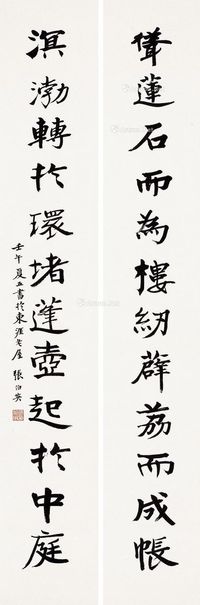 蓮石而為樓紉薜荔而成帳
溟渤轉扵環堵蓬壺起扵中庭
壬午夏五書扵東涯老屋 張伯英